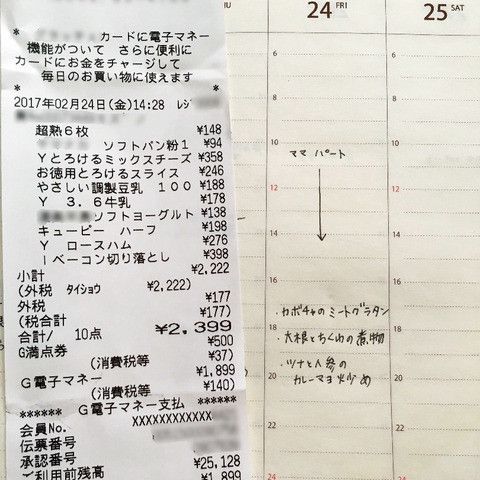 カードに電子マネー
機能がついて さらに便利に
カードにお金をチャージして
毎日のお買い物に使えます
2017年02月24日(金)14:28 レジ
超熟6枚 ¥148
ソフトパン粉1 ¥94
Yとろけるミックスチーズ ¥358
お徳用とろけるスライス ¥246
やさしい調製豆乳 100 ¥188
Y 3.6牛乳 ¥178
ソフトヨーグルト ¥138
キューピー ハーフ ¥198
Y ロースハム ¥276
Iベーコン切り落とし ¥398
小計 ¥2,222
(外税 タイショウ ¥2,222)
外税 ¥177
(税合計 ¥177)
合計/ 10点 ¥2,399
G満点券 ¥500
(消費税等 ¥37)
G電子マネー ¥1,899
(消費税等 ¥140)
****** G電子マネー支払 ******
会員No. XXXXXXXXXXXX
伝票番号
承認番号
ご利用前残高 ¥25,128
¥1,899
24 FRI
25 SAT
8
8
10
10
ママ パート
12
12
14
14
16
16
・カボチャのミートグラタン
18
18
・大根とちくわの煮物
・ツナと人参の
カレーマヨ炒め
20
20
22
22
24
24